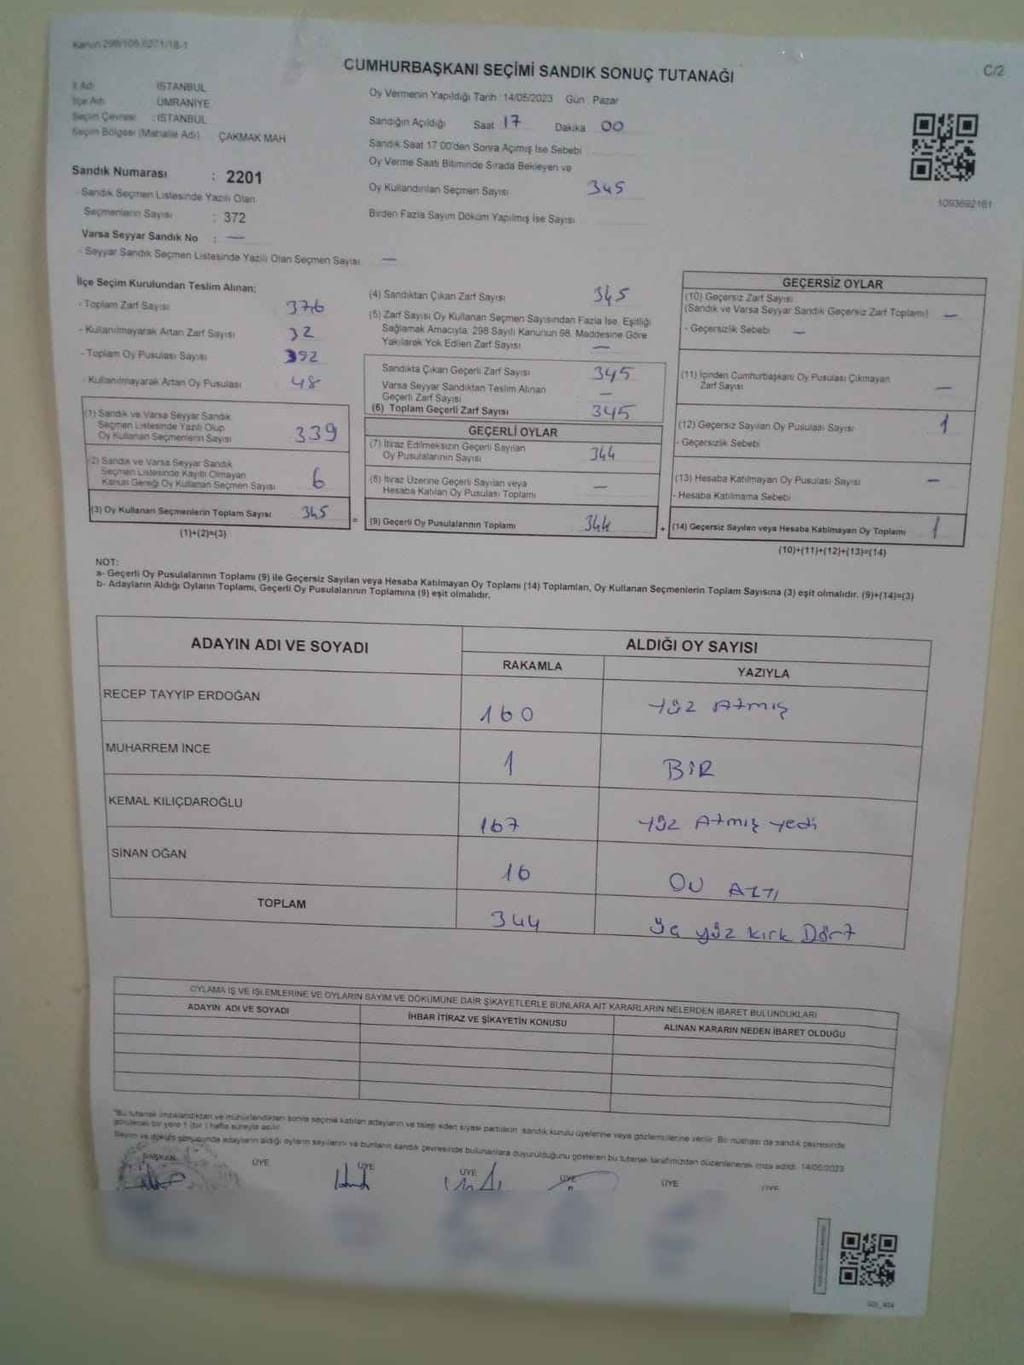 Kanun 298/106,6271/18-1
C/2
CUMHURBAŞKANI SEÇİMİ SANDIK SONUÇ TUTANAĞI
İl Adı : İSTANBUL
İlçe Adı : ÜMRANİYE
Seçim Çevresi : İSTANBUL
Seçim Bölgesi (Mahalle Adı) : ÇAKMAK MAH
Sandık Numarası : 2201
- Sandık Seçmen Listesinde Yazılı Olan
Seçmenlerin Sayısı : 372
Varsa Seyyar Sandık No : —
- Seyyar Sandık Seçmen Listesinde Yazılı Olan Seçmen Sayısı —
Oy Vermenin Yapıldığı Tarih : 14/05/2023 Gün : Pazar
Sandığın Açıldığı Saat 17 Dakika 00
Sandık Saat 17:00'den Sonra Açımış İse Sebebi
Oy Verme Saati Bitiminde Sırada Bekleyen ve
Oy Kullandırılan Seçmen Sayısı 345
Birden Fazla Sayım Döküm Yapılmış İse Sayısı
1093692161
İlçe Seçim Kurulundan Teslim Alınan;
- Toplam Zarf Sayısı 376
- Kullanılmayarak Artan Zarf Sayısı 32
- Toplam Oy Pusulası Sayısı 392
- Kullanılmayarak Artan Oy Pusulası 48
(1) Sandık ve Varsa Seyyar Sandık
Seçmen Listesinde Yazılı Olup
Oy Kullanan Seçmenlerin Sayısı 339
(2) Sandık ve Varsa Seyyar Sandık
Seçmen Listesinde Kayıtlı Olmayan
Kanun Gereği Oy Kullanan Seçmen Sayısı 6
(3) Oy Kullanan Seçmenlerin Toplam Sayısı 345
(1)+(2)=(3)
(4) Sandıktan Çıkan Zarf Sayısı 345
(5) Zarf Sayısı Oy Kullanan Seçmen Sayısından Fazla İse, Eşitliği
Sağlamak Amacıyla, 298 Sayılı Kanunun 98. Maddesine Göre
Yakılarak Yok Edilen Zarf Sayısı —
Sandıkta Çıkan Geçerli Zarf Sayısı 345
Varsa Seyyar Sandıktan Teslim Alınan
Geçerli Zarf Sayısı —
(6) Toplam Geçerli Zarf Sayısı 345
GEÇERLİ OYLAR
(7) İtiraz Edilmeksizin Geçerli Sayılan
Oy Pusulalarının Sayısı 344
(8) İtiraz Üzerine Geçerli Sayılan veya
Hesaba Katılan Oy Pusulası Toplamı —
= (9) Geçerli Oy Pusulalarının Toplamı 344
GEÇERSİZ OYLAR
(10) Geçersiz Zarf Sayısı
(Sandık ve Varsa Seyyar Sandık Geçersiz Zarf Toplamı) —
- Geçersizlik Sebebi —
(11) İçinden Cumhurbaşkanı Oy Pusulası Çıkmayan
Zarf Sayısı —
(12) Geçersiz Sayılan Oy Pusulası Sayısı 1
- Geçersizlik Sebebi
(13) Hesaba Katılmayan Oy Pusulası Sayısı —
- Hesaba Katılmama Sebebi
+ (14) Geçersiz Sayılan veya Hesaba Katılmayan Oy Toplamı 1
(10)+(11)+(12)+(13)=(14)
NOT:
a- Geçerli Oy Pusulalarının Toplamı (9) ile Geçersiz Sayılan veya Hesaba Katılmayan Oy Toplamı (14) Toplamları, Oy Kullanan Seçmenlerin Toplam Sayısına (3) eşit olmalıdır. (9)+(14)=(3)
b- Adayların Aldığı Oyların Toplamı, Geçerli Oy Pusulalarının Toplamına (9) eşit olmalıdır.
ADAYIN ADI VE SOYADI ALDIĞI OY SAYISI
RAKAMLA YAZIYLA
RECEP TAYYİP ERDOĞAN 160 yüz Atmış
MUHARREM İNCE 1 BİR
KEMAL KILIÇDAROĞLU 167 yüz Atmış yedi
SİNAN OĞAN 16 ON ALTI
TOPLAM 344 üç yüz kırk Dört
OYLAMA İŞ VE İŞLEMLERİNE VE OYLARIN SAYIM VE DÖKÜMÜNE DAİR ŞİKAYETLERLE BUNLARA AİT KARARLARIN NELERDEN İBARET BULUNDUKLARI
ADAYIN ADI VE SOYADI İHBAR İTİRAZ VE ŞİKAYETİN KONUSU ALINAN KARARIN NEDEN İBARET OLDUĞU
*Bu tutanak imzalandıktan ve mühürlendikten sonra seçime katılan adayların ve talep eden siyasi partilerin sandık kurulu üyelerine veya gözlemcilerine verilir. Bir nüshası da sandık çevresinde
görülecek bir yere 1 (bir) hafta süreyle asılır.
Seçim ve döküm sonucunda adayların aldığı oyların sayılarını ve bunların sandık çevresinde bulunanlara duyurulduğunu gösteren bu tutanak tarafımızdan düzenlenerek imza edildi. 14/05/2023
BAŞKAN ÜYE ÜYE ÜYE ÜYE ÜYE ÜYE